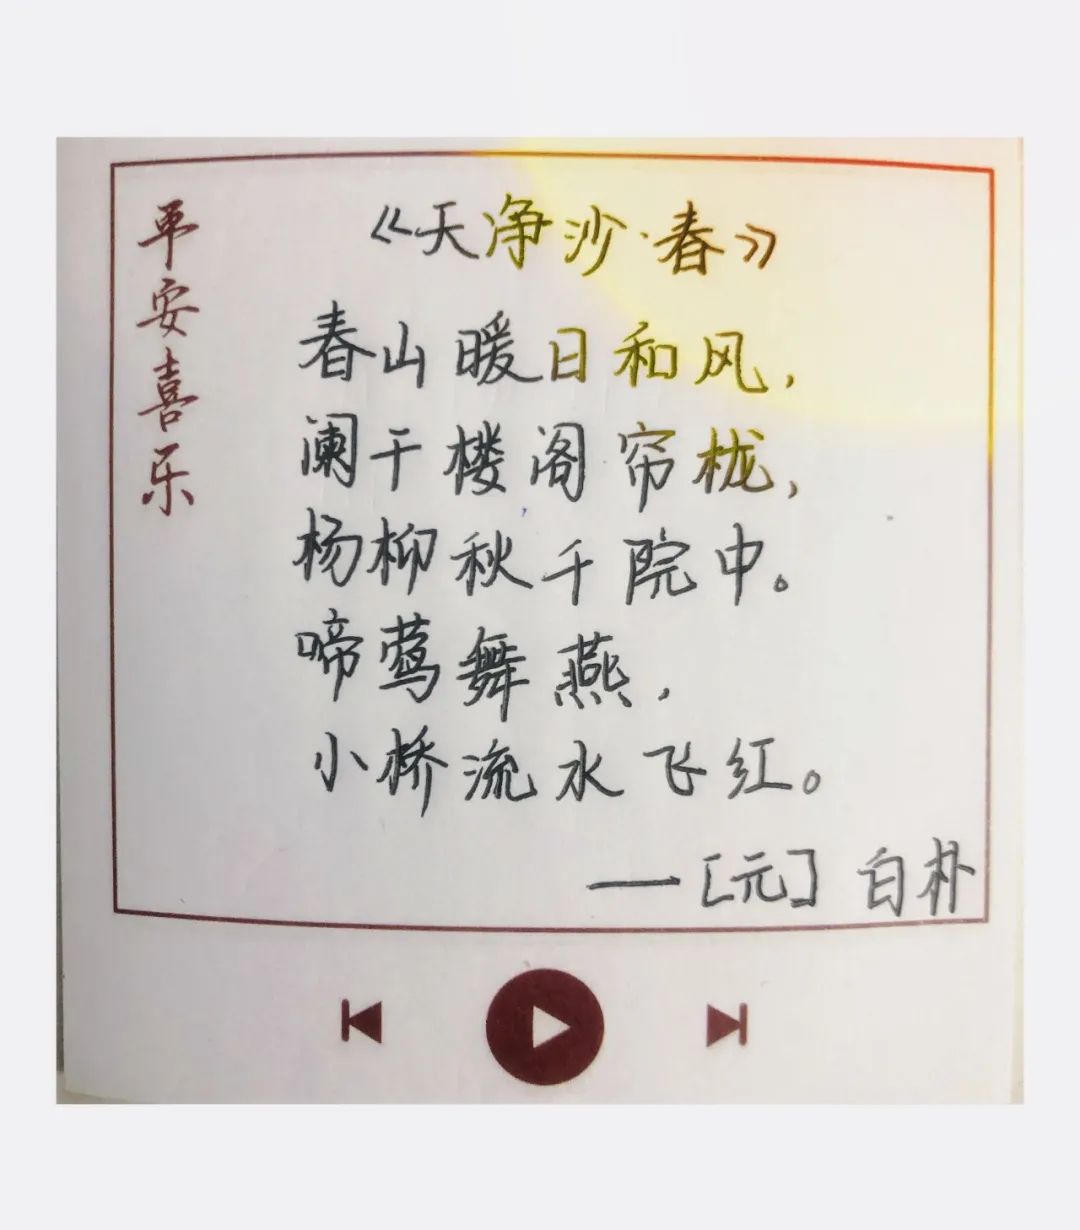 平安喜乐
《天净沙·春》
春山暖日和风，
阑干楼阁帘栊，
杨柳秋千院中。
啼莺舞燕，
小桥流水飞红。
——[元] 白朴